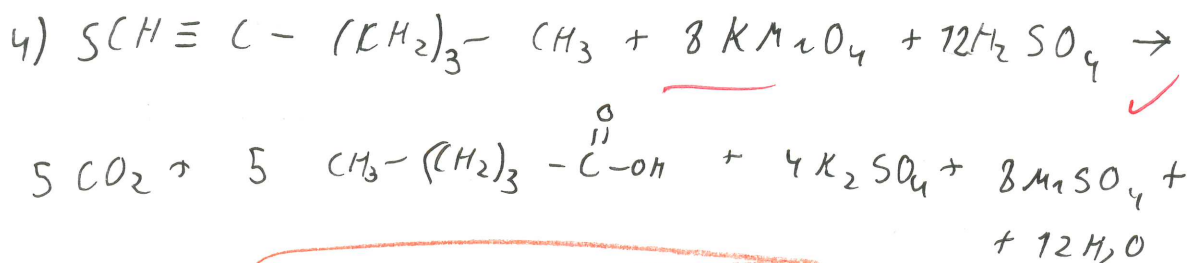 4) 5CH ≡ C - (CH₂)₃ - CH₃ + 8 KMnO₄ + 12H₂SO₄ →
O
5 CO₂ + 5 CH₃ - (CH₂)₃ - C - OH + 4 K₂SO₄ + 8MnSO₄ +
+ 12 H₂O